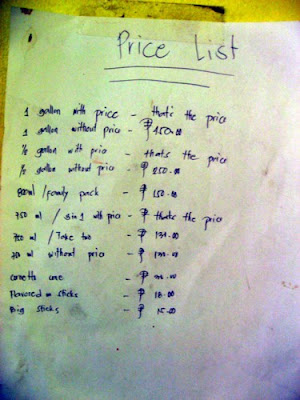 Price List
1 gallon with price - that's the price
1 gallon without price - ₱450.00
1/2 gallon with price - that's the price
1/2 gallon without price - ₱ 250.00
800ml / family pack - ₱ 150.00
750 ml / 3in1 with price - ₱ that's the price
750 ml / Take two - ₱
750 ml without price - ₱
cornetto cone - ₱
Flavored on sticks - ₱ 18.00
Big sticks - ₱ 15.00